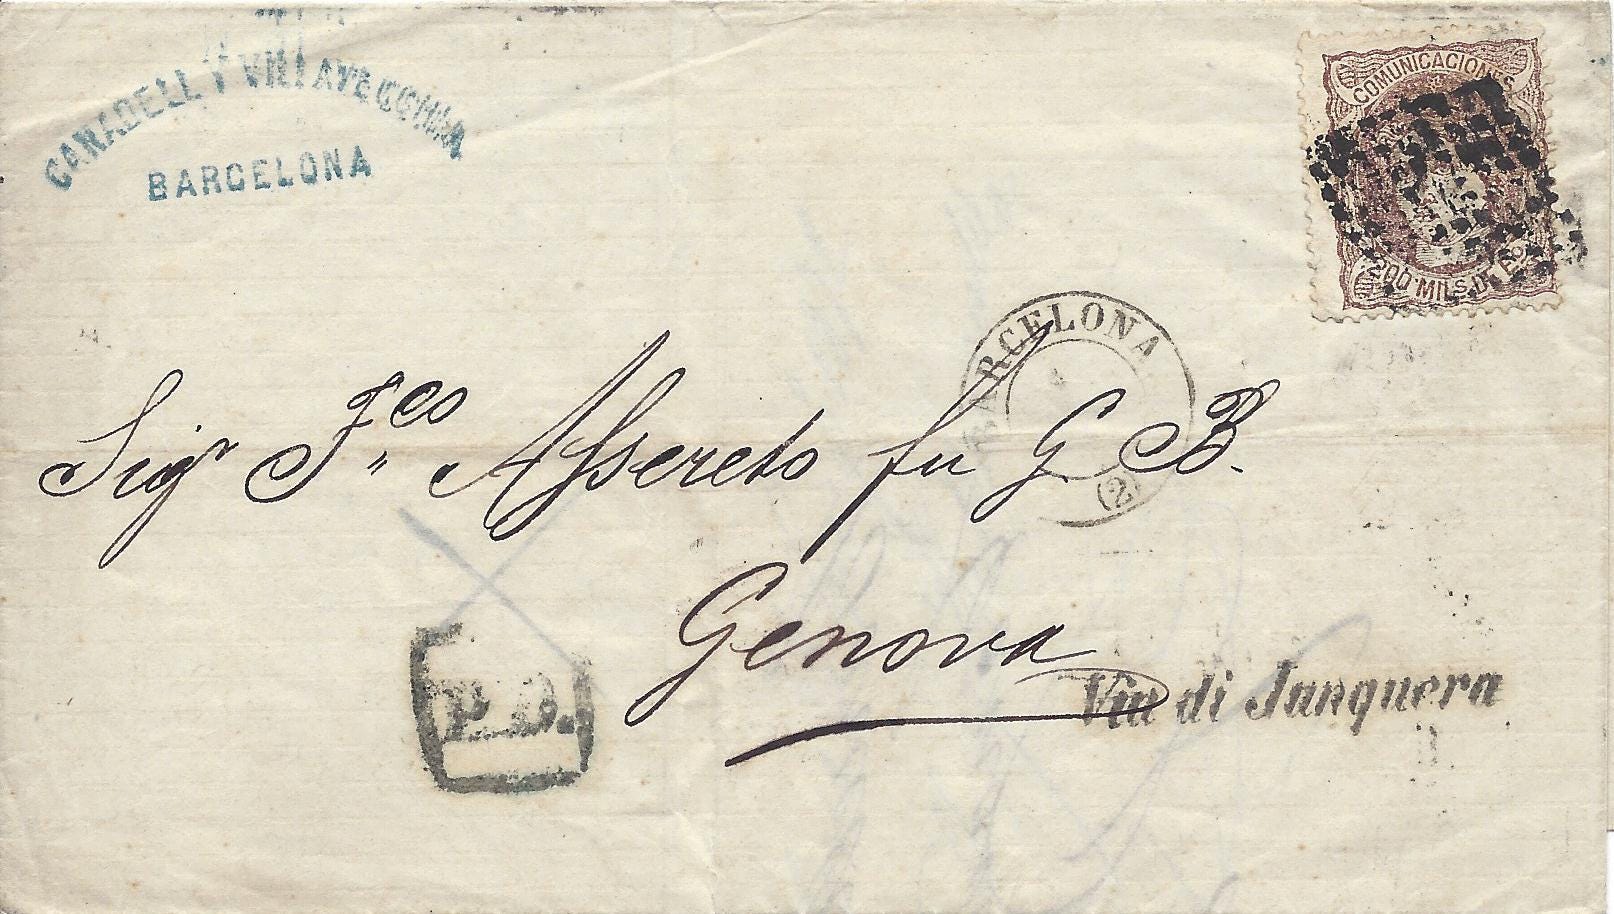 CANADELL Y VILLAVECCHIA
BARCELONA
COMUNICACIONES
200 MILS. DE Eo.
BARCELONA
(2)
Sigr. F.co Assereto fu G B.
Genova
P.D.
Via di Junquera